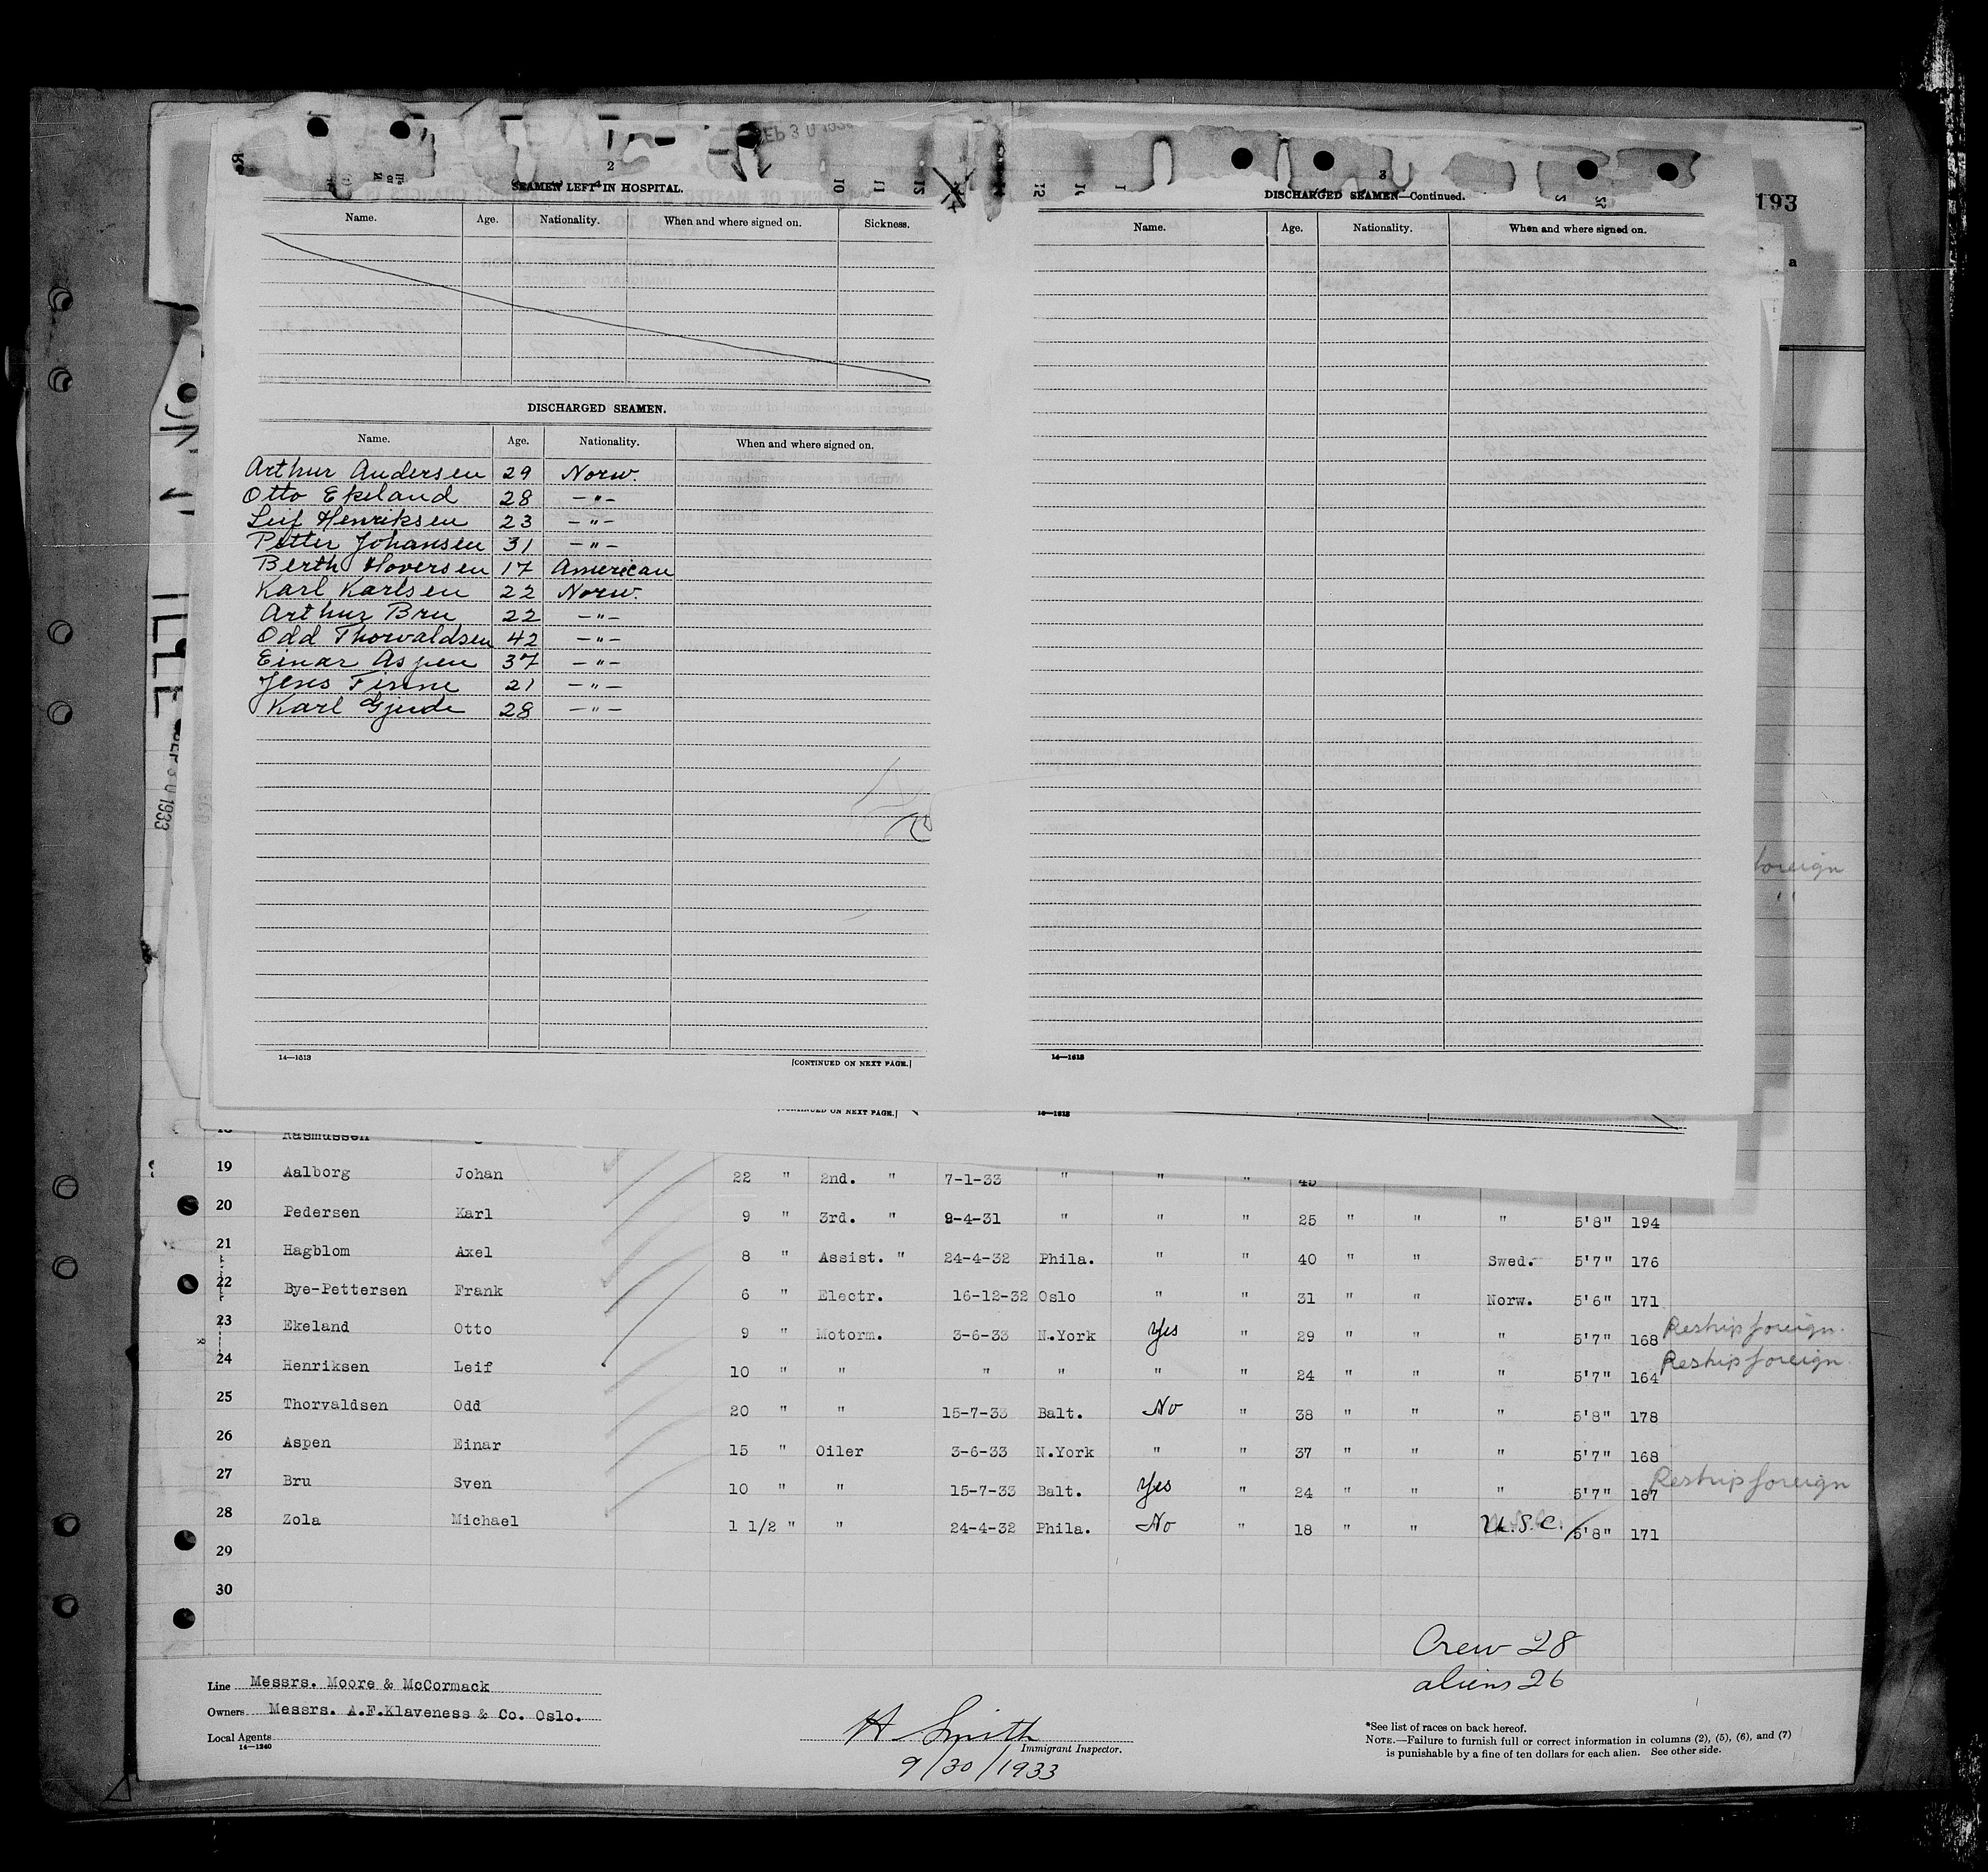 193
2
SEAMEN LEFT IN HOSPITAL.
Name. Age. Nationality. When and where signed on. Sickness.
DISCHARGED SEAMEN.
Name. Age. Nationality. When and where signed on.
Arthur Andersen 29 Norw.
Otto Ekeland 28 -"-
Leif Henriksen 23 -"-
Petter Johansen 31 -"-
Berth Hoversen 17 American
Karl Karlsen 22 Norw.
Arthur Bru 22 -"-
Odd Thorvaldsen 42 -"-
Einar Aspen 37 -"-
Jens Finne 21 -"-
Karl Gjerde 28 -"-
14—1613 [CONTINUED ON NEXT PAGE.]
3
DISCHARGED SEAMEN—Continued.
Name. Age. Nationality. When and where signed on.
14—1613
foreign
"
[CONTINUED ON NEXT PAGE.]
18 Rasmussen
19 Aalborg Johan 22 " 2nd. " 7-1-33 " " " 45
20 Pedersen Karl 9 " 3rd. " 9-4-31 " " " 25 " " " 5'8" 194
21 Hagblom Axel 8 " Assist. " 24-4-32 Phila. " " 40 " " Swed. 5'7" 176
22 Bye-Pettersen Frank 6 " Electr. 16-12-32 Oslo " " 31 " " Norw. 5'6" 171
23 Ekeland Otto 9 " Motorm. 3-6-33 N.York Yes " 29 " " " 5'7" 168 Reship foreign.
24 Henriksen Leif 10 " " " " " " 24 " " " 5'7" 164 Reship foreign.
25 Thorvaldsen Odd 20 " " 15-7-33 Balt. No " 38 " " " 5'8" 178
26 Aspen Einar 15 " Oiler 3-6-33 N.York " " 37 " " " 5'7" 168
27 Bru Sven 10 " " 15-7-33 Balt. Yes " 24 " " " 5'7" 167 Reship foreign
28 Zola Michael 1 1/2 " " 24-4-32 Phila. No " 18 " " U.S.C. 5'8" 171
29
30
Crew 28
aliens 26
Line Messrs. Moore & McCormack
Owners Messrs. A.F.Klaveness & Co. Oslo.
Local Agents
14—1240
H Smith
Immigrant Inspector.
9/30/1933
*See list of races on back hereof.
NOTE.—Failure to furnish full or correct information in columns (2), (5), (6), and (7)
is punishable by a fine of ten dollars for each alien. See other side.